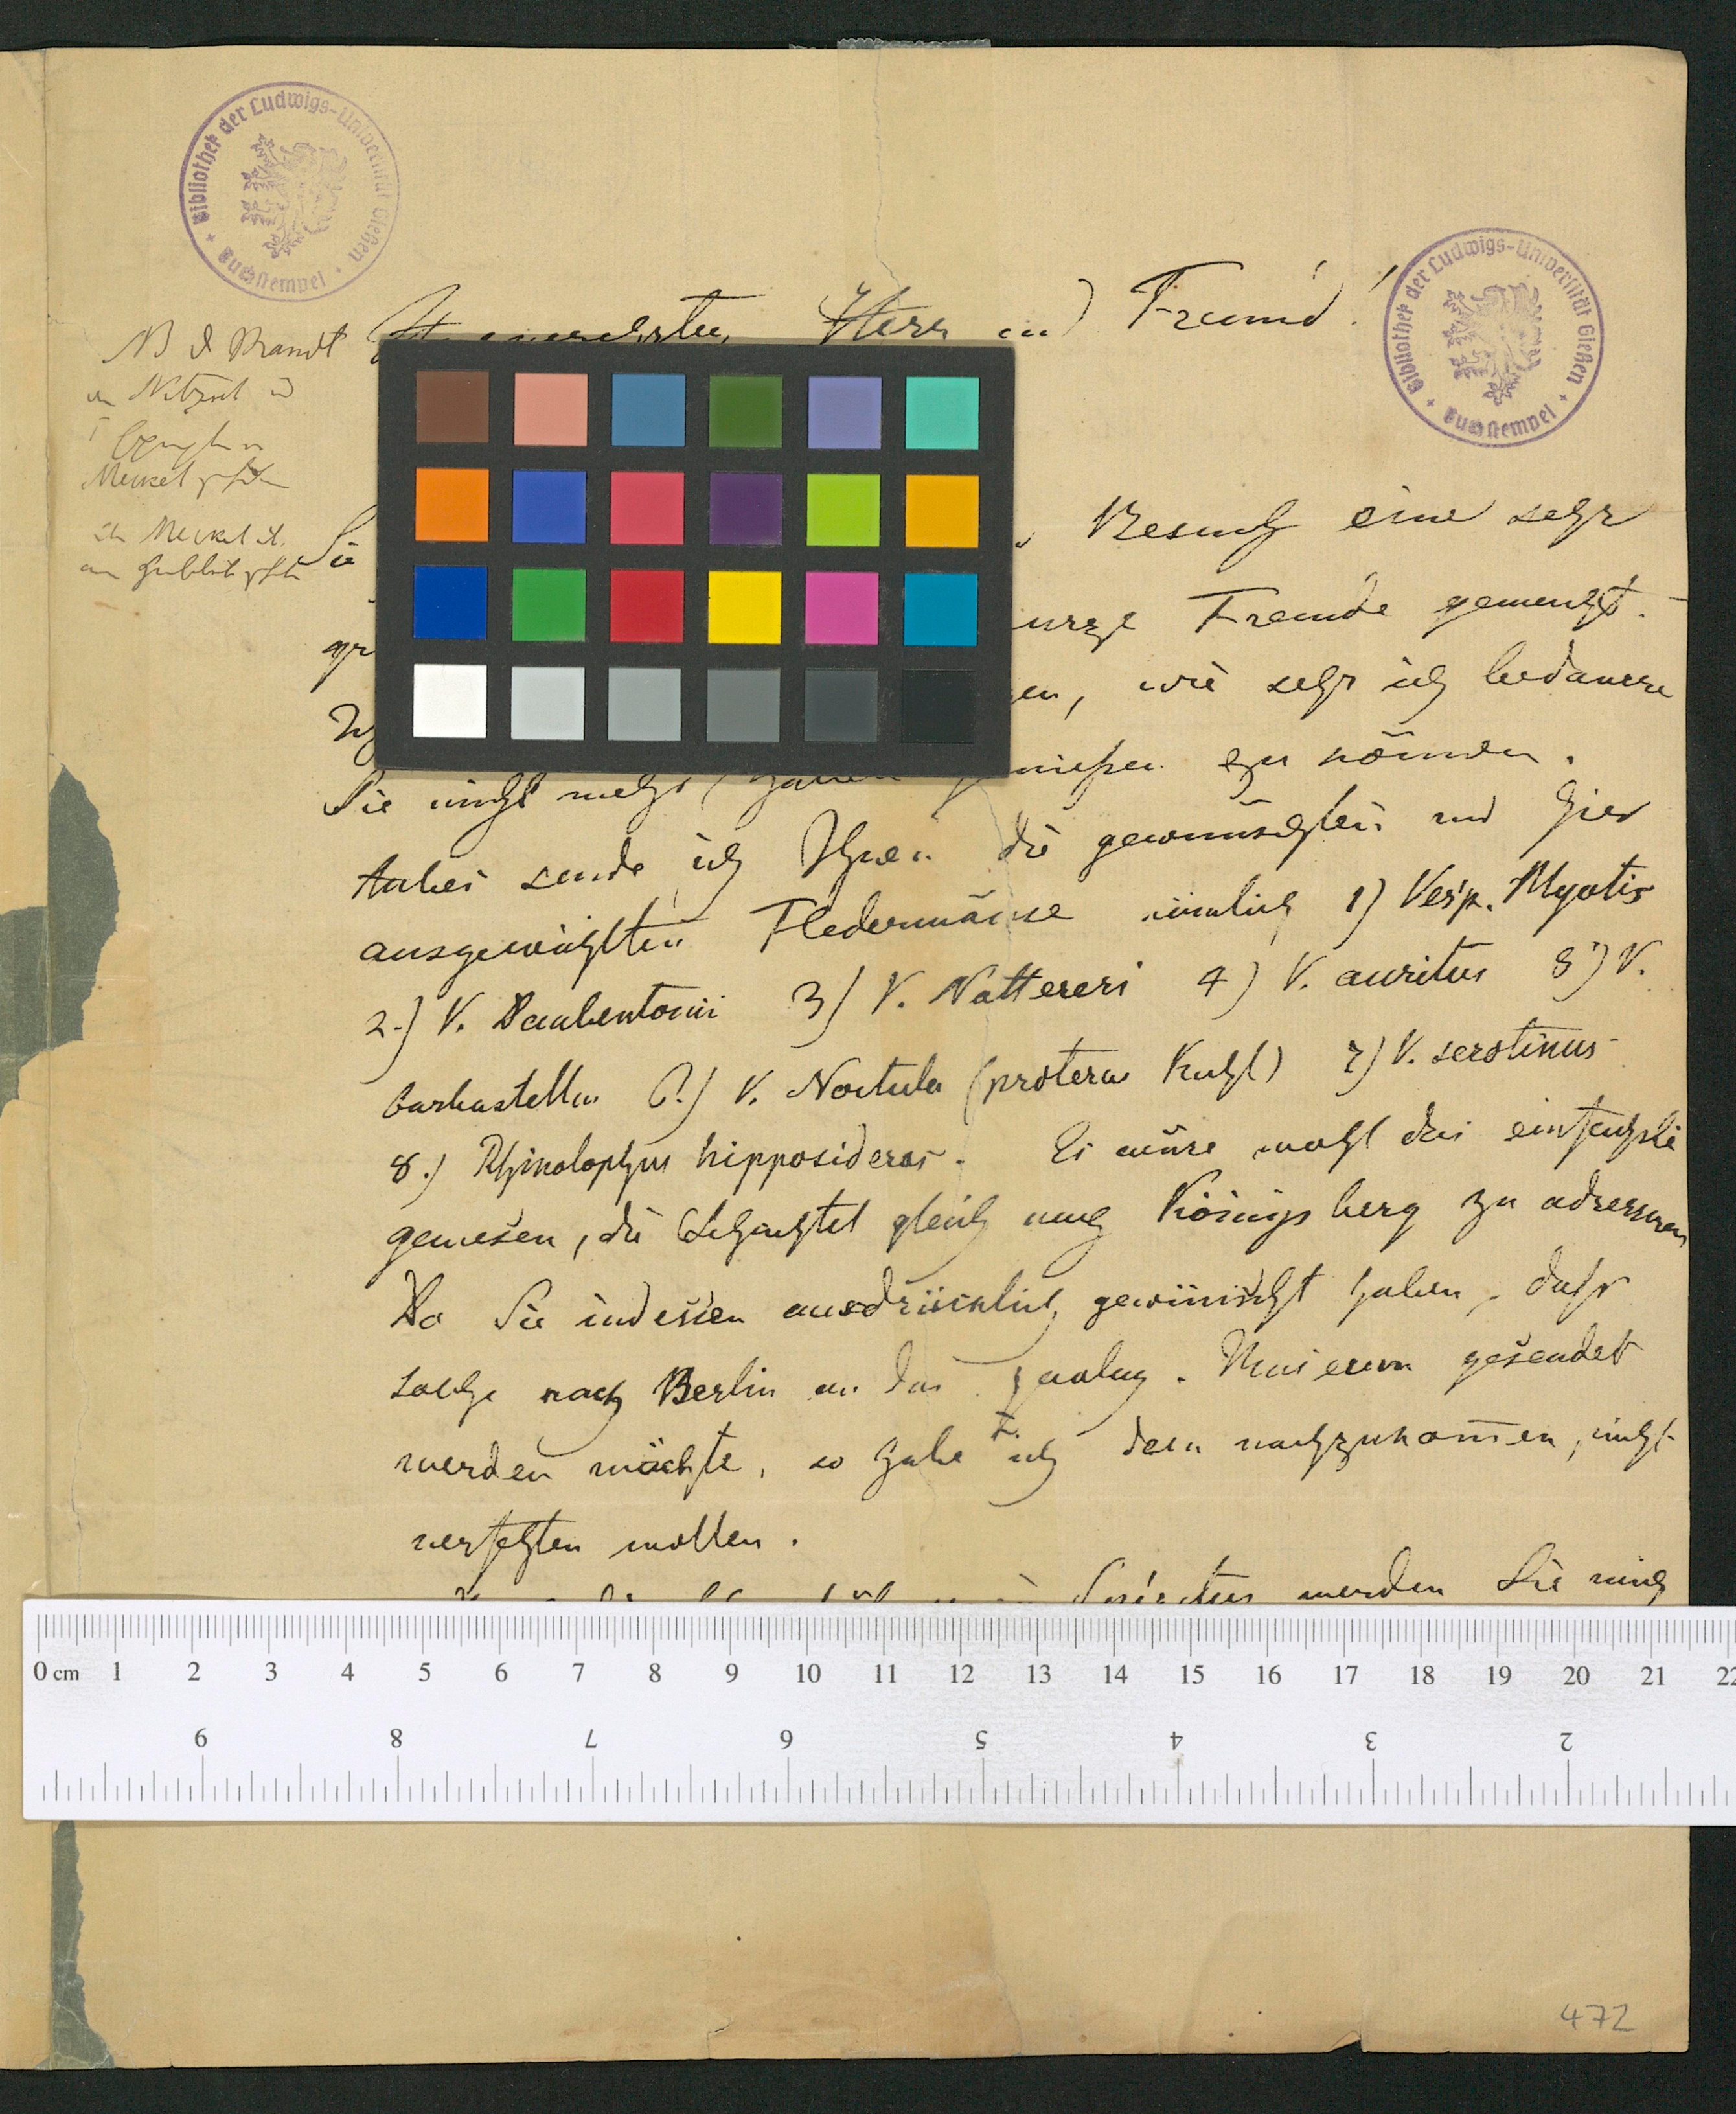 Bibliothek der Ludwigs-Universität Gießen
Buchstempel
Bibliothek der Ludwigs-Universität Gießen
Buchstempel
Herr und Freund!
NB d Brandt
Meckel
Meckel
Sie
Besuch eine sehr
Freude gemacht.
wie sehr ich bedauere
Sie nicht mehr zu können.
Anbei sende ich Ihnen die gewünschten und hier
ausgewählten Fledermäuse nämlich 1) Vesp. Myotis
2.) V. Daubentonii 3) V. Nattereri 4) V. auritus 5) V.
barbastellus 6.) V. Noctula (proterus Kuhl) 7) V. serotinus
8.) Rhinolophus hipposideros. Es wäre wohl das einfachste
gewesen, die Schachtel gleich nach Königsberg zu adressiren
Da Sie indessen ausdrücklich gewünscht haben, daß
solche nach Berlin an das zoolog. Museum gesendet
werden möchte, so habe ich dem nachzukommen, nicht
verfehlen wollen.
werden Sie mich
0 cm 1 2 3 4 5 6 7 8 9 10 11 12 13 14 15 16 17 18 19 20 21 22
9 8 7 6 5 4 3 2
472